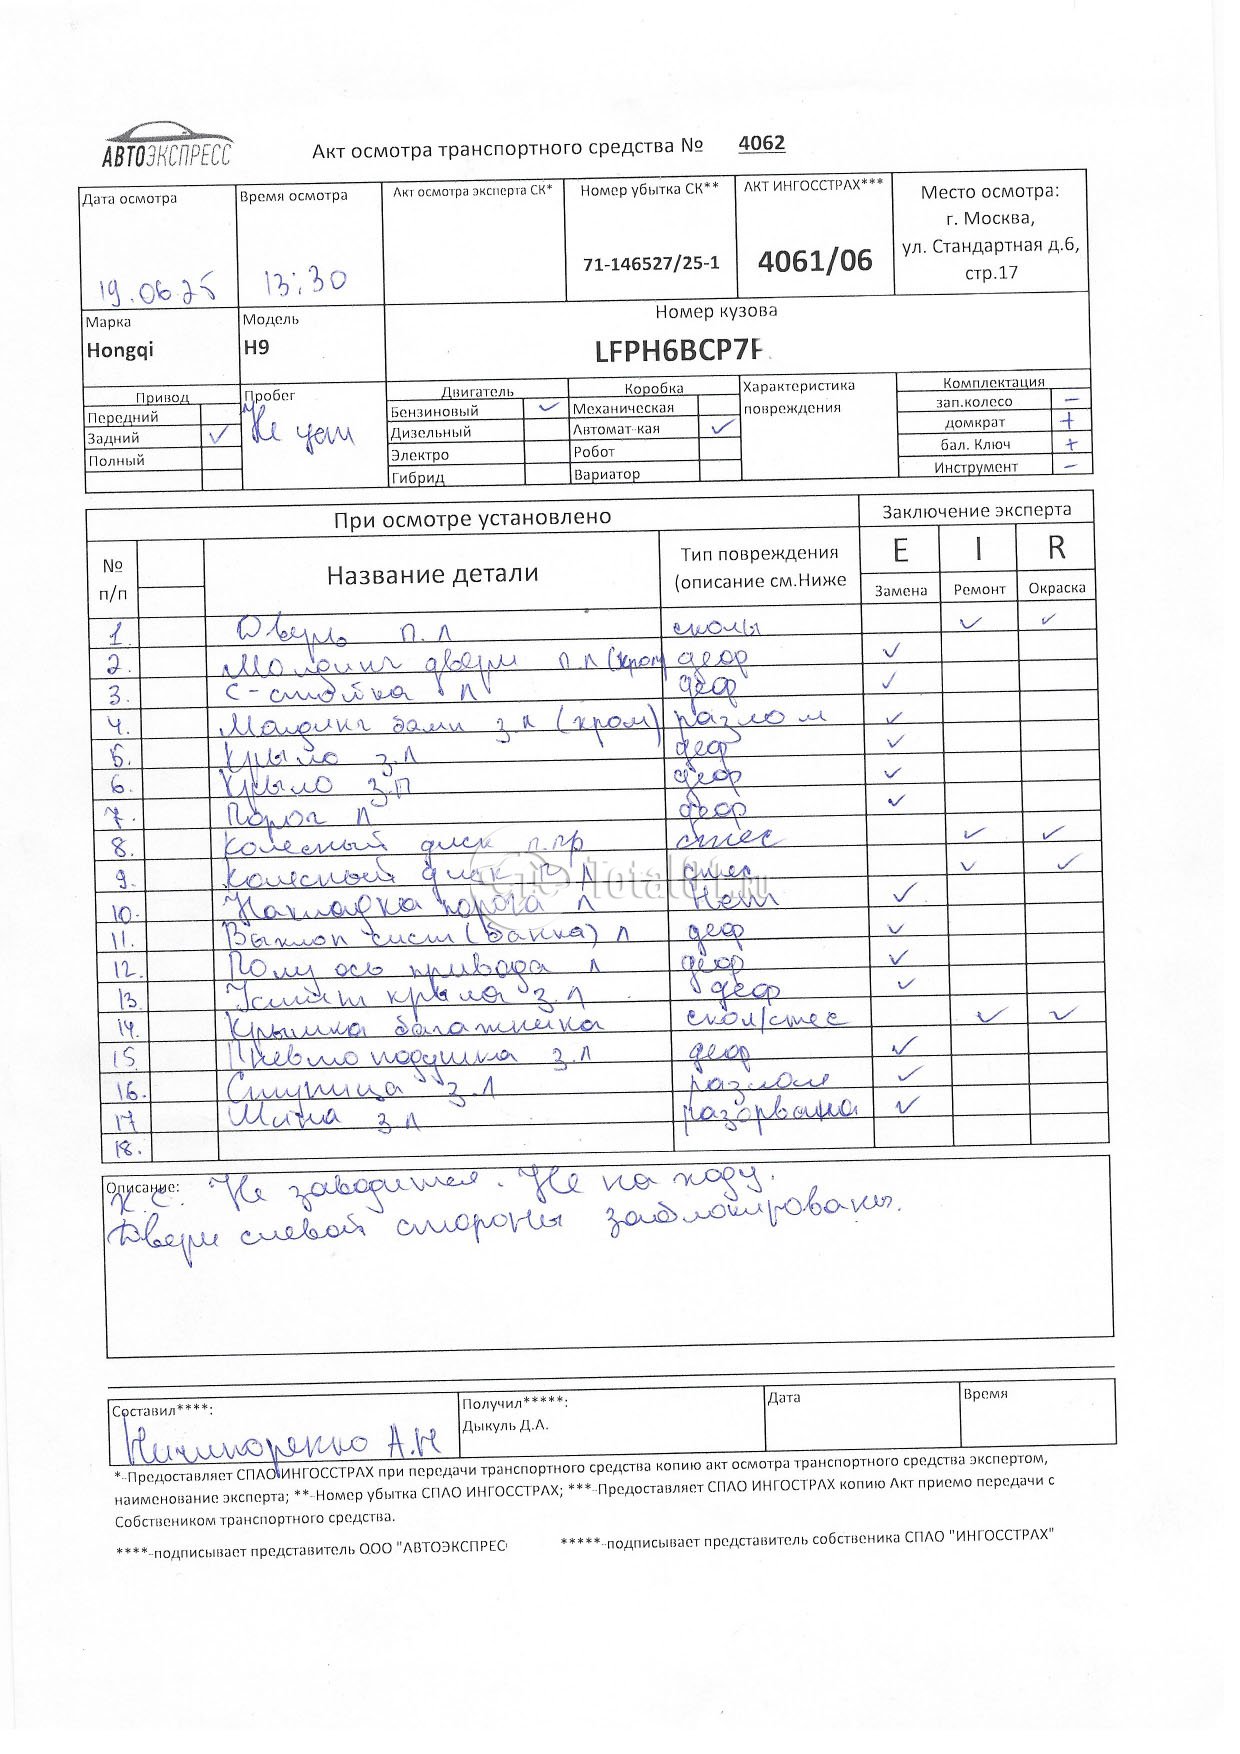 АВТОЭКСПРЕСС
Акт осмотра транспортного средства № 4062
Дата осмотра
19.06.25
Время осмотра
13:30
Акт осмотра эксперта СК*
Номер убытка СК**
71-146527/25-1
АКТ ИНГОССТРАХ***
4061/06
Место осмотра:
г. Москва,
ул. Стандартная д.6,
стр.17
Марка
Hongqi
Модель
H9
Номер кузова
LFPH6BCP7
Привод
Передний
Задний ✓
Полный
Пробег
Не уст
Двигатель
Бензиновый ✓
Дизельный
Электро
Гибрид
Коробка
Механическая
Автомат кая ✓
Робот
Вариатор
Характеристика
повреждения
Комплектация
зап.колесо –
домкрат +
бал. Ключ +
Инструмент –
При осмотре установлено
Заключение эксперта
№
п/п
Название детали
Тип повреждения
(описание см.Ниже
E I R
Замена Ремонт Окраска
1. Дверь п.л сколы ✓ ✓
2. Молдинг двери п л (хром) деф ✓
3. С-стойка л деф ✓
4. Молдинг бамп з л (хром) разлом ✓
5. Крыло з.л деф ✓
6. Крыло з.п деф ✓
7. Порог л деф ✓
8. Колесный диск п.пр стес ✓ ✓
9. Колесный диск л стес ✓ ✓
10. Накладка порога л Нет ✓
11. Выхлоп сист (банка) л деф ✓
12. Полу ось привода л деф ✓
13. крыла з.л деф ✓
14. Крышка багажника скол/стес ✓ ✓
15. Пневмоподушка з.л деф ✓
16. Ступица з.л разлом ✓
17 Шина з л разорвана ✓
18.
Total01.ru
Описание:
К.С. Не заводится. Не на ходу.
Двери слевой стороны заблокированы.
Составил****:
Ничипоренко А.Н
Получил*****:
Дыкуль Д.А.
Дата
Время
*-Предоставляет СПАО ИНГОССТРАХ при передачи транспортного средства копию акт осмотра транспортного средства экспертом,
наименование эксперта; **-Номер убытка СПАО ИНГОССТРАХ; ***-Предоставляет СПАО ИНГОСТРАХ копию Акт приемо передачи с
Собствеником транспортного средства.
****-подписывает представитель ООО "АВТОЭКСПРЕС
*****-подписывает представитель собственика СПАО "ИНГОССТРАХ"